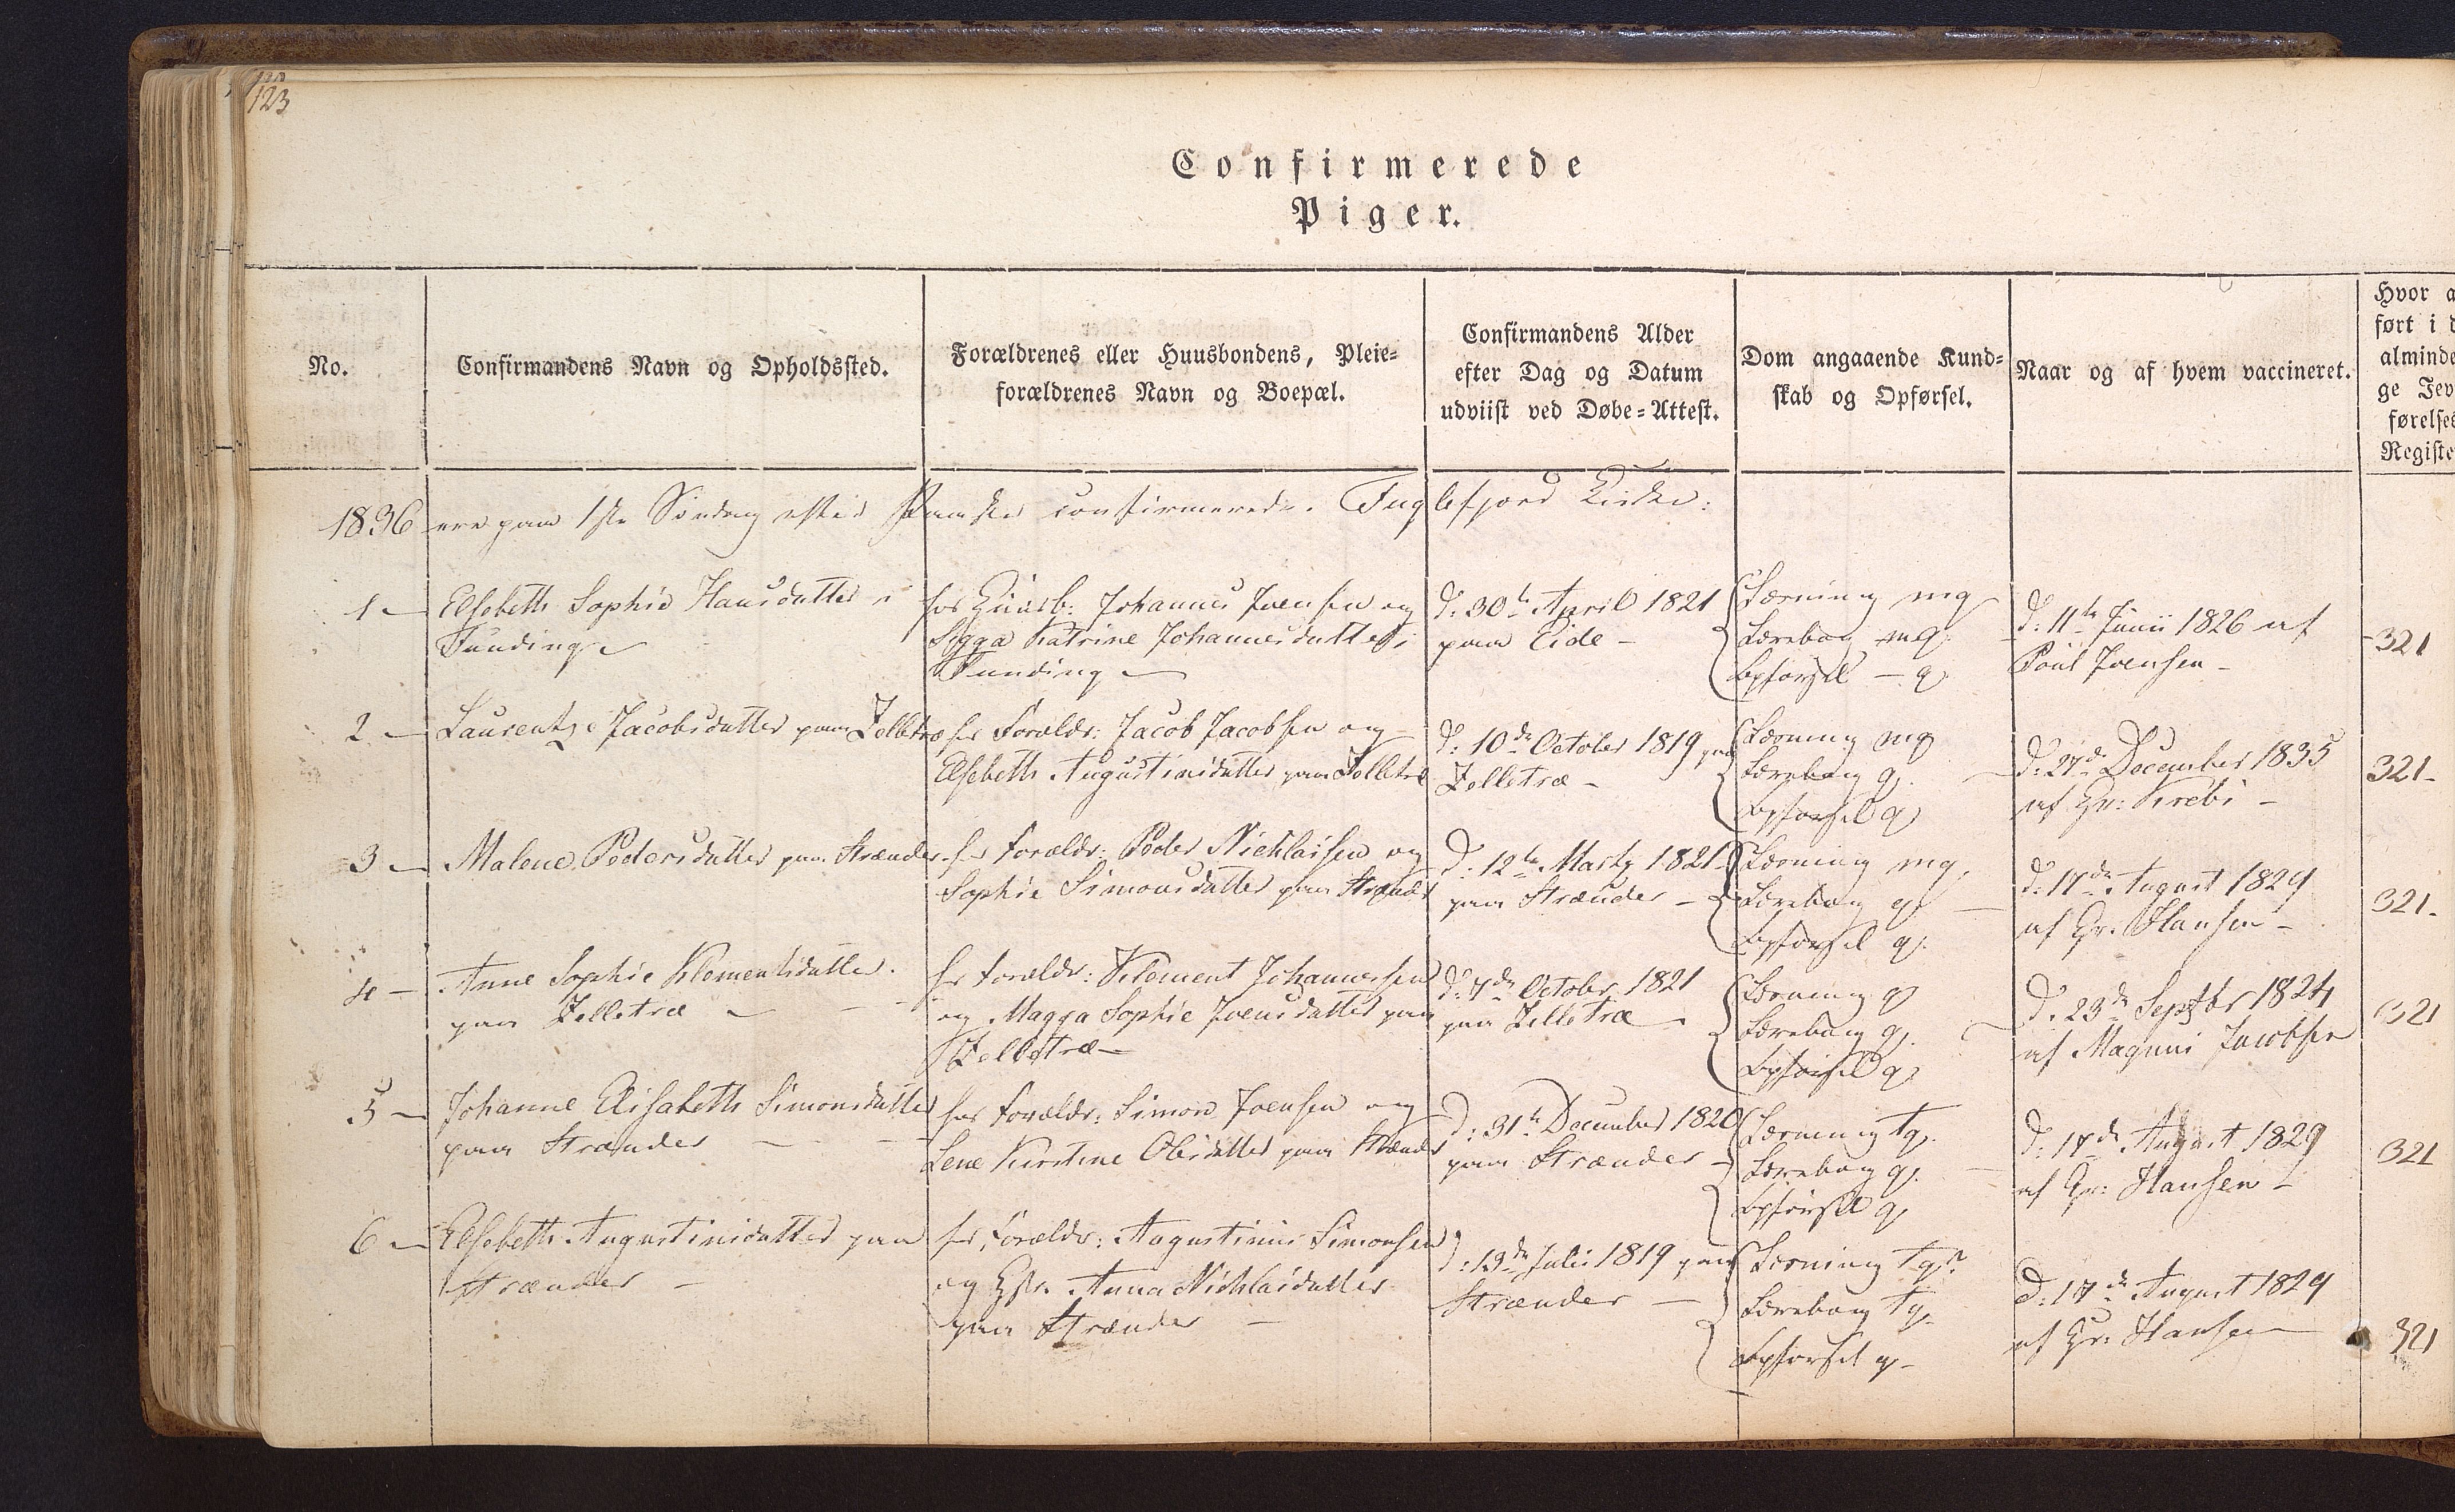 123
Confirmerede
Piger.
No.
Confirmandens Navn og Opholdssted.
Forældrenes eller Huusbondens, Pleie-
forældrenes Navn og Boepæl.
Confirmandens Alder
efter Dag og Datum
udviist ved Døbe-Attest.
Dom angaaende Kund-
skab og Opførsel.
Naar og af hvem vaccineret.
Hvor a
ført i d
alminde
ge Jev
førelses
Registe
1836 ere paa 1ste Søndag efter Paaske confirmerede. Fuglefjord Kirke:
1 —
Elsebeth Sophie Hansdatter i
Funding
hos Huusb: Johannes Joensen og
Sigga Katrine Johannesdatter i
Funding
d: 30te April 1821
paa Eide —
Lærning mg
Lærebog mg.
Opførsel — g
d: 11te Junii 1826 af
Poul Joensen —
321
2 —
Laurentze Jacobsdatter paa Zelletræ
hos Forældr: Jacob Jacobsen og
Elsebeth Augustinisdatter paa Zelletræ
d: 10de October 1819 paa
Zelletræ —
Lærning mg
Lærebog g.
Opførsel g
d: 27de December 1835
af Hr: Krebs —
321 —
3 —
Malene Pedersdatter paa Strænder
hos Forældr: Peder Nichlaisen og
Sophie Simonsdatter paa Strænder
d: 12te Martz 1821
paa Strænder —
Lærning mg.
Lærebog g.
Opførsel g.
d: 17de August 1829
af Hr: Hansen —
321 —
4 —
Anne Sophie Klementsdatter
paa Zelletræ —
hos Forældr: Klement Johannessen
og Magga Sophie Joensdatter paa
Zelletræ —
d: 7de October 1821
paa Zelletræ —
Lærning g
Lærebog g.
Opførsel g
d: 23de Septbr 1824
af Magnus Jacobsen
321
5 —
Johanne Elisabeth Simonsdatter
paa Strænder —
hos Forældr: Simon Joensen og
Lene Kirstine Olesdatter paa Strænder
d: 31te December 1820
paa Strænder —
Lærning tg.
Lærebog g.
Opførsel g
d: 17de August 1829
af Hr: Hansen —
321
6 —
Elsebeth Augustinisdatter paa
Strænder —
hos Forældr: Augustinus Simonsen
og Hstr. Anna Nichlaisdatter
paa Strænder —
d: 13de Julii 1819 paa
Strænder —
Lærning tg?
Lærebog tg.
Opførsel g —
d: 17de August 1829
af Hr: Hansen
321